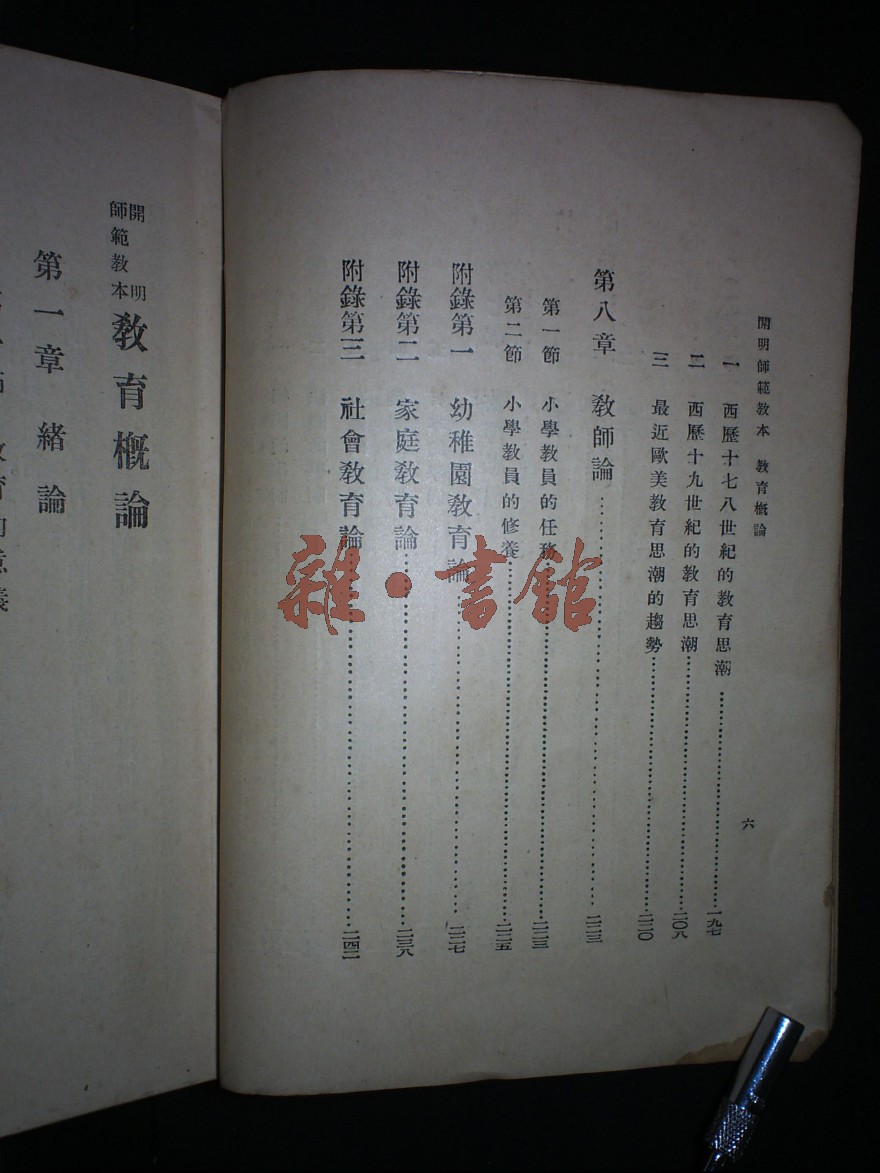 開明師範教本 教育概論
一 西歷十七八世紀的教育思潮……一九七
二 西歷十九世紀的教育思潮……二〇八
三 最近歐美教育思潮的趨勢……二二〇
六
第八章 教師論……二二三
第一節 小學教員的任務……二二三
第二節 小學教員的修養……二二五
附錄第一 幼稚園教育論……二二七
附錄第二 家庭教育論……二三八
附錄第三 社會教育論……二四二
開明師範教本 教育概論
第一章 緒論
雜·書館